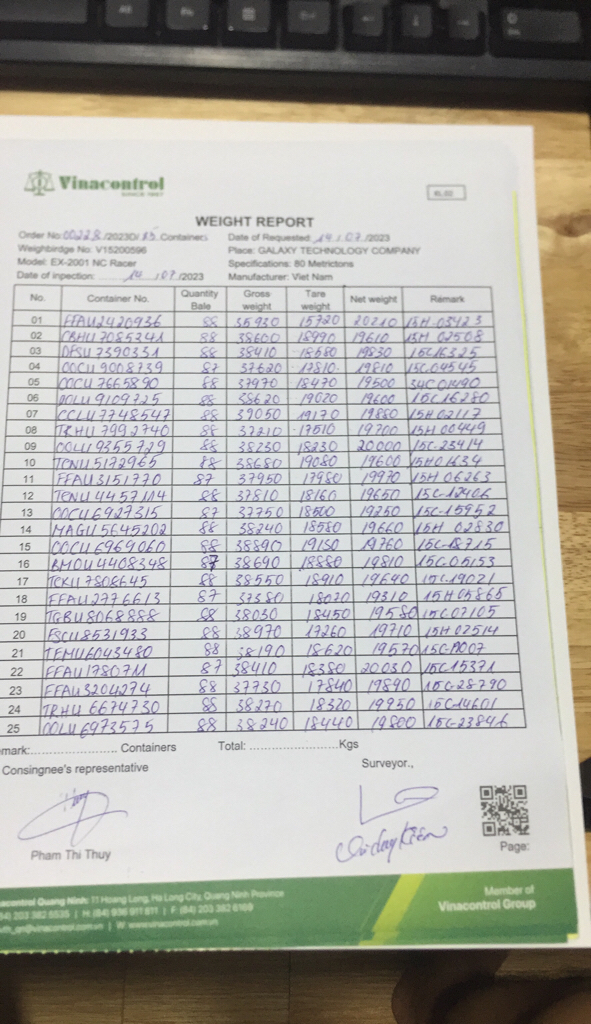 Vinacontrol
SINCE 1957
KL.03
WEIGHT REPORT
Order No: 00228/2023O/ 85 Containers Date of Requested: 14/07/2023
Weighbirdge No: V15200596 Place: GALAXY TECHNOLOGY COMPANY
Model: EX-2001 NC Racer Specifications: 80 Metrictons
Date of inpection: 14/07/2023 Manufacturer: Viet Nam
No. Container No. Quantity Bale Gross weight Tare weight Net weight Remark
01 FFAU2420936 88 35930 15720 20210 15H-03423
02 88 38600 18990 19610 15H 02508
03 DFSU7390331 88 38410 18580 19830 15C16325
04 OOCU9008739 87 37620 17810 19810 15C04545
05 OOCU7665890 88 37970 18470 19500 34C01490
06 OOLU9109725 88 38620 19020 19600 15C16280
07 CCLU7748547 88 39050 19170 19880 15H02117
08 TRHU7992740 88 37210 17510 19700 15H00449
09 OOLU9355729 88 38230 18230 20000 15C-23414
10 TCNU5172965 88 38680 19080 19600 15H01634
11 FFAU3151770 87 37950 17980 19970 15H06263
12 TCNU4457114 88 37810 18160 19650 15C-12406
13 OOCU6927315 88 37750 18500 19250 15C-15952
14 MAGU5645202 88 38240 18580 19660 15H 02830
15 OOCU6969060 88 38890 19130 19760 15C-18715
16 BMOU4408348 87 38690 18880 19810 15C05153
17 TCKU7808645 88 38550 18910 19640 15C19021
18 FFAU2776613 87 37330 18020 19310 15H05865
19 TGBU8068888 88 38030 18450 19580 15C07105
20 FSCU8531933 88 38970 17260 19710 15H02514
21 TEMU6043480 88 38190 18620 19570
22 FFAU1780711 87 38410 18380 20030 15C15371
23 FFAU3204274 88 37730 17840 19890 15C-28790
24 TRHU6674730 88 38270 18320 19950 15C14601
25 OOLU6973575 88 38240 18440 19800 15C-23846
mark:........................ Containers Total: ........................Kgs
Consingnee's representative Surveyor.,
Pham Thi Thuy Page:
nacontrol Quang Ninh: 11 Hoang Long, Ha Long City, Quang Ninh Province
84) 203 382 5535 | H: (84) 936 911 811 | F: (84) 203 382 6169
| W: www.vinacontrol.com.vn
Member of
Vinacontrol Group